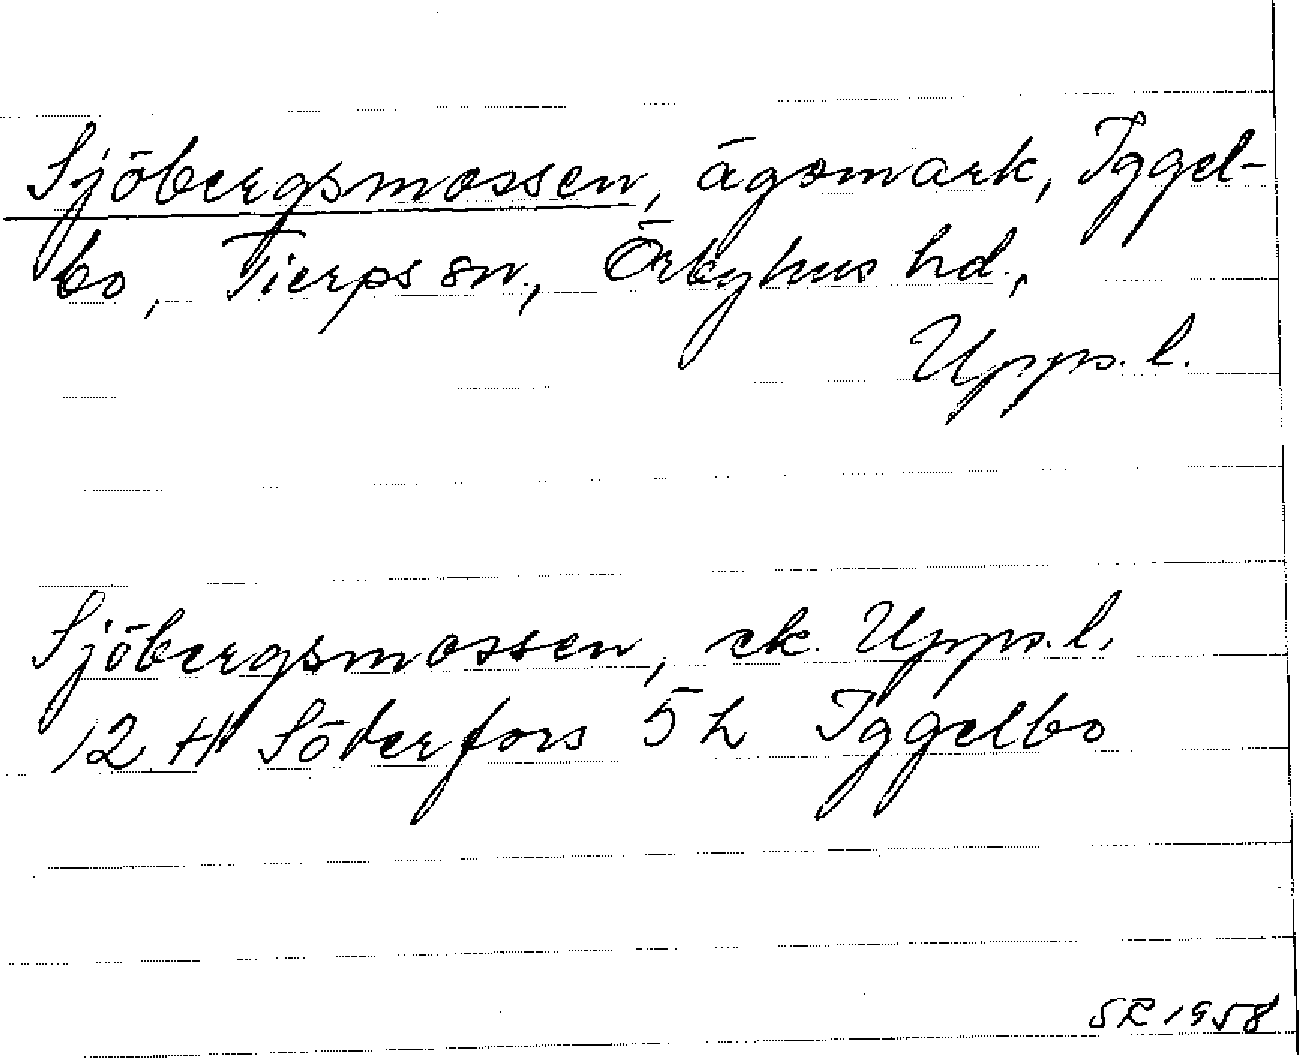 Sjöbergsmossen, ägomark, Iggel-
bo, Tierps sn, Örbyhus hd.,
Upps. l.
Sjöbergsmossen, ek. Upps. l.
12 H Söderfors 5 h Iggelbo
SR 1958